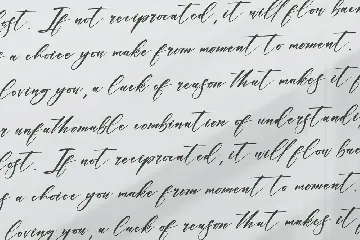 lost. If not reciprocated, it will flow back
a choice you make from moment to moment.
loving you, a lack of reason that makes it
unfathomable combination of understandi
lost. If not reciprocated, it will flow back
a choice you make from moment to moment.
loving you, a lack of reason that makes it